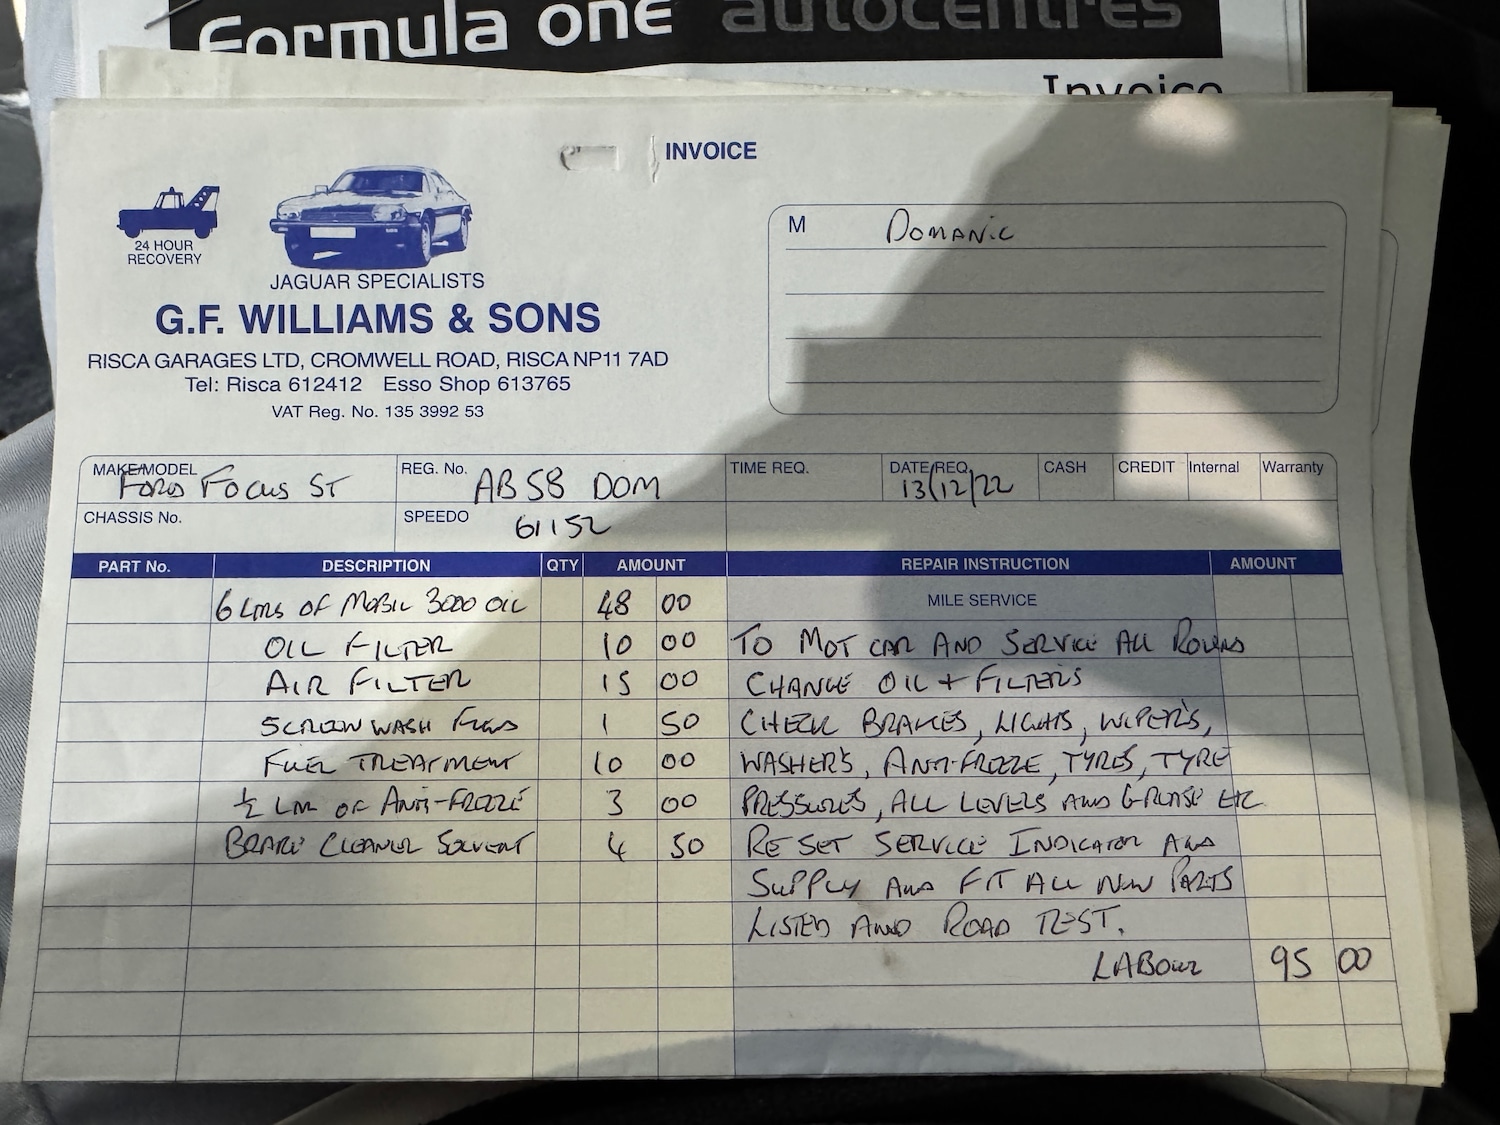 Formula one autocentres
Invoice
INVOICE
24 HOUR
RECOVERY
JAGUAR SPECIALISTS
G.F. WILLIAMS & SONS
RISCA GARAGES LTD, CROMWELL ROAD, RISCA NP11 7AD
Tel: Risca 612412 Esso Shop 613765
VAT Reg. No. 135 3992 53
M DOMANIC
MAKE/MODEL FORD FOCUS ST REG. No. AB58 DOM TIME REQ. DATE REQ. 13/12/22 CASH CREDIT Internal Warranty
CHASSIS No. SPEEDO 61152
PART No. DESCRIPTION QTY AMOUNT REPAIR INSTRUCTION AMOUNT
6 LTRS OF MOBIL 3000 OIL 48 00 MILE SERVICE
OIL FILTER 10 00 TO MOT CAR AND SERVICE ALL ROUND
AIR FILTER 15 00 CHANGE OIL + FILTERS
SCREEN WASH FLUID 1 50 CHECK BRAKES, LIGHTS, WIPER'S,
FUEL TREATMENT 10 00 WASHER'S, ANTI-FREEZE, TYRES, TYRE
½ LTR OF ANTI-FREEZE 3 00 PRESSURES, ALL LEVELS AND GREASE ETC
BRAKE CLEANER SOLVENT 4 50 RESET SERVICE INDICATOR AND
SUPPLY AND FIT ALL NEW PARTS
LISTED AND ROAD TEST.
LABOUR 95 00